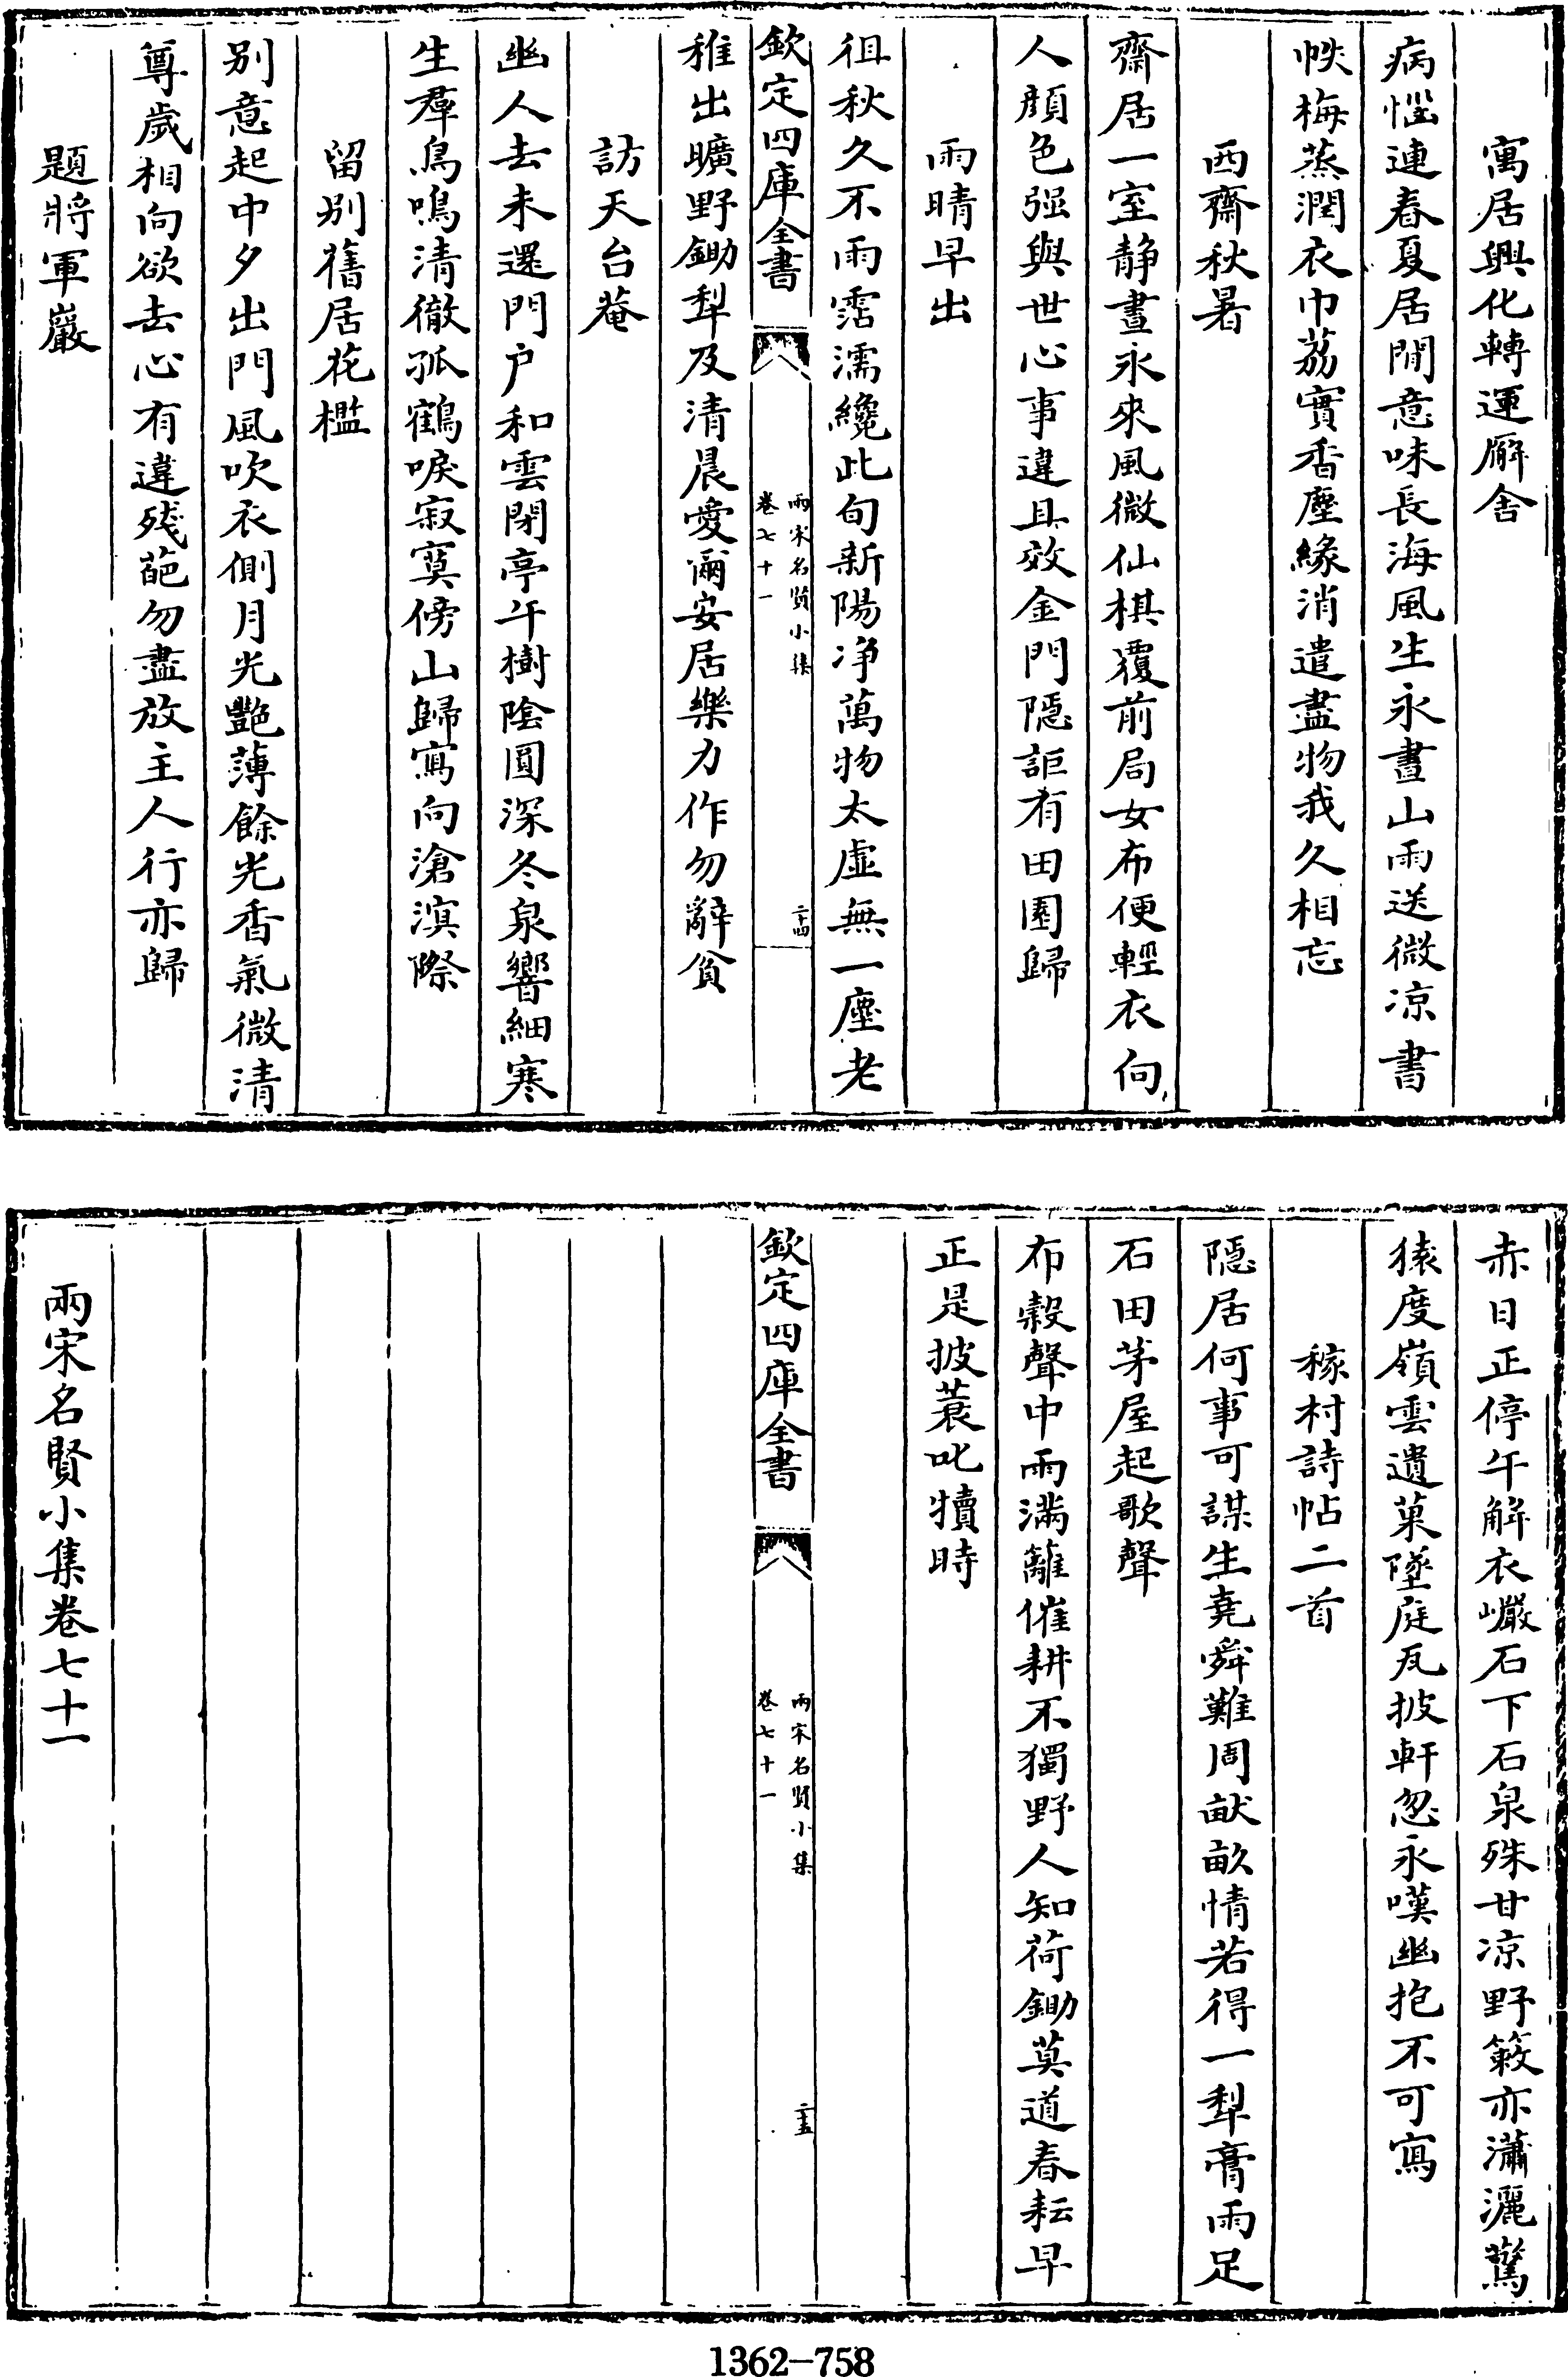 寓居興化轉運廨舍
病惱連春夏居閒意味長海風生永晝山雨送微凉書
帙梅蒸潤衣巾荔實香塵緣消遣盡物我久相忘
西齋秋暑
齋居一室静晝永來風微仙棋覆前局女布便輕衣向
人顔色强與世心事違且效金門隱詎有田園歸
雨晴早出
徂秋久不雨霑濡纔此旬新陽净萬物太虚無一塵老
欽定四庫全書
兩宋名賢小集
卷七十一
二十四
稚出曠野鋤犁及清晨愛爾安居樂力作勿辭貧
訪天台菴
幽人去未還門户和雲閉亭午樹陰圓深冬泉響細寒
生羣鳥鳴清徹孤鶴唳寂寞傍山歸寫向滄溟際
留别舊居花檻
别意起中夕出門風吹衣側月光艷薄餘光香氣微清
尊歲相向欲去心有違殘葩勿盡放主人行亦歸
題將軍巖
赤日正停午解衣巘石下石泉殊甘凉野簌亦瀟灑驚
猿度嶺雲遺菓墜庭瓦披軒忽永嘆幽抱不可寫
稼村詩帖二首
隱居何事可謀生堯舜難周畎畝情若得一犁膏雨足
石田茅屋起歌聲
布穀聲中雨满籬催耕不獨野人知荷鋤莫道春耘早
正是披蓑叱犢時
欽定四庫全書
兩宋名賢小集
卷七十一
二十五
兩宋名賢小集卷七十一
1362-758